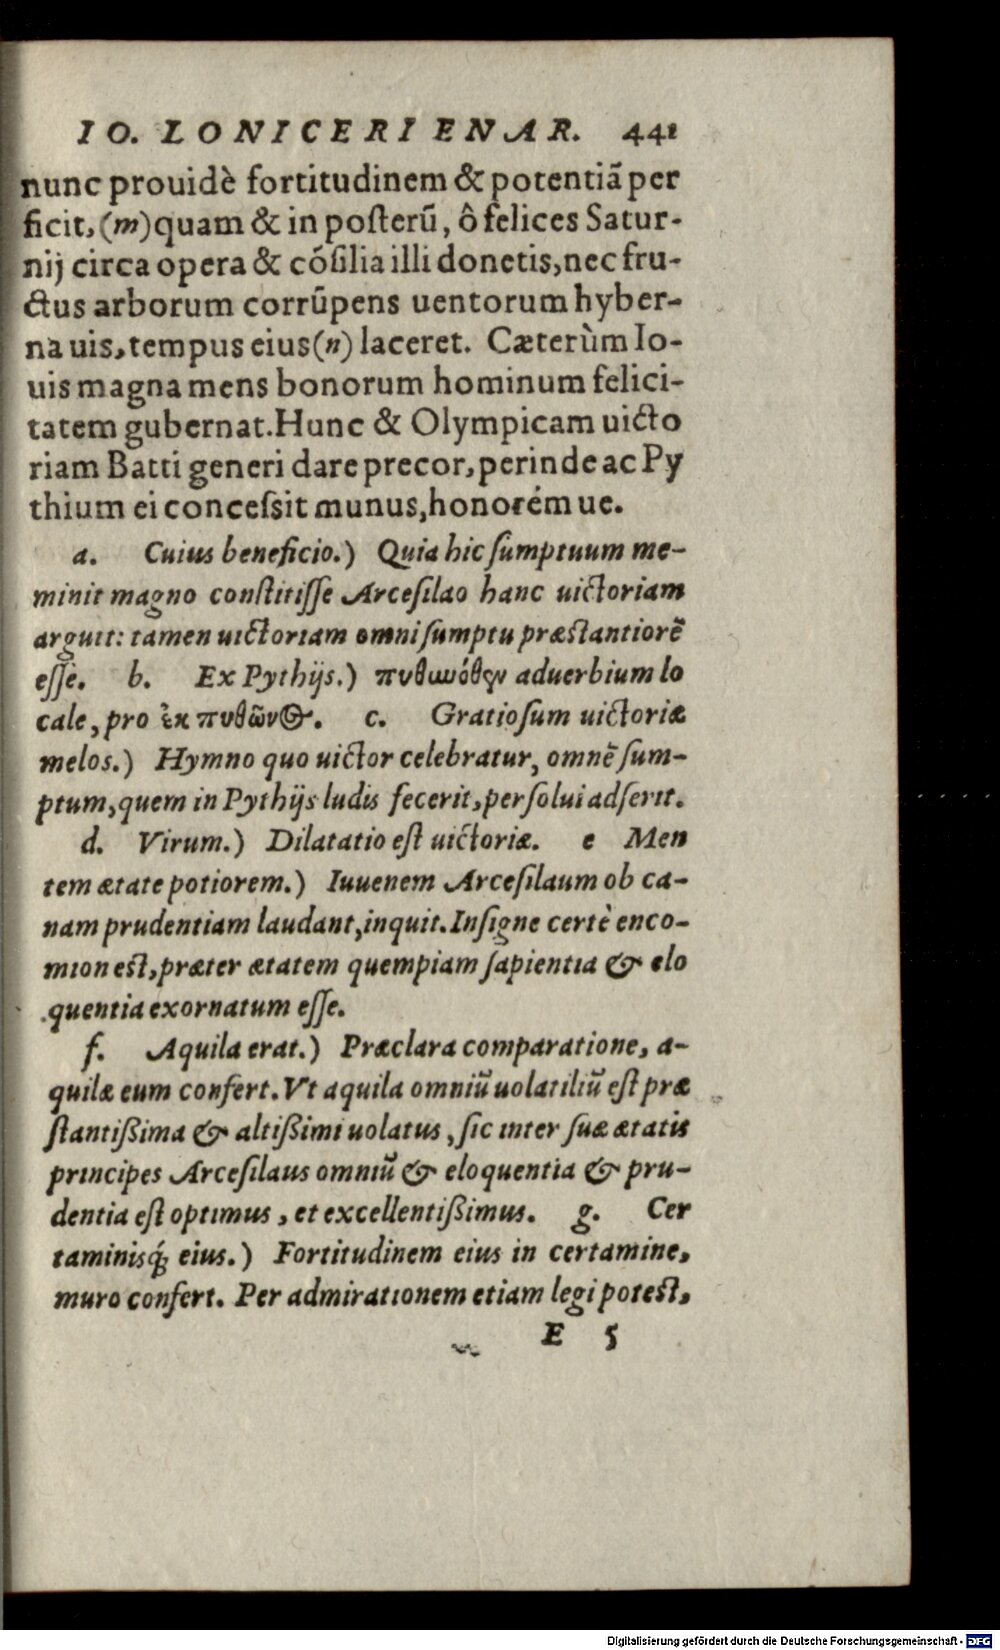 IO. LONICERI ENAR. 441
nunc prouidè fortitudinem & potentiã per
ficit, (m) quam & in posterũ, ô felices Satur-
nij circa opera & cósilia illi donetis, nec fru-
ctus arborum corrũpens uentorum hyber-
na uis, tempus eius (n) laceret. Cæterùm Io-
uis magna mens bonorum hominum felici-
tatem gubernat. Hunc & Olympicam uicto
riam Batti generi dare precor, perinde ac Py
thium ei concessit munus, honorém ue.
a. Cuius beneficio.) Quia hic sumptuum me-
minit magno constitisse Arcesilao hanc uictoriam
arguit: tamen uictoriam omni sumptu præstantiorẽ
esse. b. Ex Pythijs.) πυθωνόθεν aduerbium lo
cale, pro ἐκ πυθῶνος. c. Gratiosum uictoriæ
melos.) Hymno quo uictor celebratur, omnẽ sum-
ptum, quem in Pythijs ludis fecerit, persolui adserit.
d. Virum.) Dilatatio est uictoriæ. e Men
tem ætate potiorem.) Iuuenem Arcesilaum ob ca-
nam prudentiam laudant, inquit. Insigne certè enco-
mion est, præter ætatem quempiam sapientia & elo
quentia exornatum esse.
f. Aquila erat.) Præclara comparatione, a-
quilæ eum confert. Vt aquila omniũ uolatiliũ est præ
stantißima & altißimi uolatus, sic inter suæ ætatis
principes Arcesilaus omniũ & eloquentia & pru-
dentia est optimus, et excellentißimus. g. Cer
taminisq́; eius.) Fortitudinem eius in certamine,
muro confert. Per admirationem etiam legi potest,
E 5
Digitalisierung gefördert durch die Deutsche Forschungsgemeinschaft - DFG